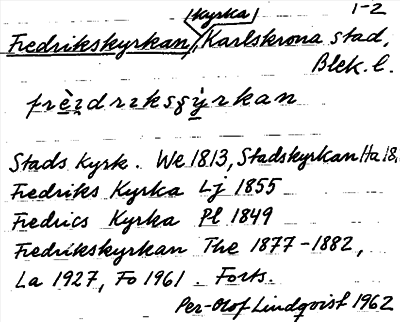 1-2
/kyrka/
Fredrikskyrkan, Karlskrona stad,
Blek. l.
Stads Kyrk. We 1813, Stadskyrkan Ha 18
Fredriks Kyrka Lj 1855
Fredrics Kyrka Pl 1849
Fredrikskyrkan The 1877-1882,
La 1927, Fo 1961. Forts.
Per-Olof Lindqvist 1962